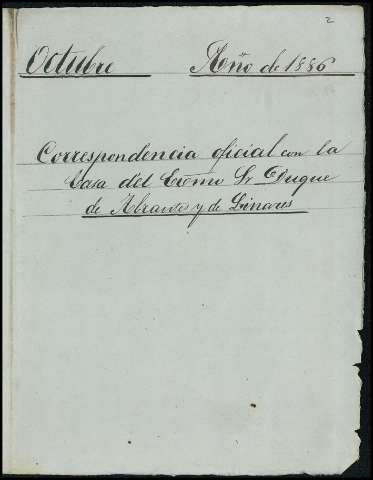 2
Octubre Año de 1886
Correspondencia oficial con la
Casa del Exc̃mo Sr Duque
de Abrantes y de Linares